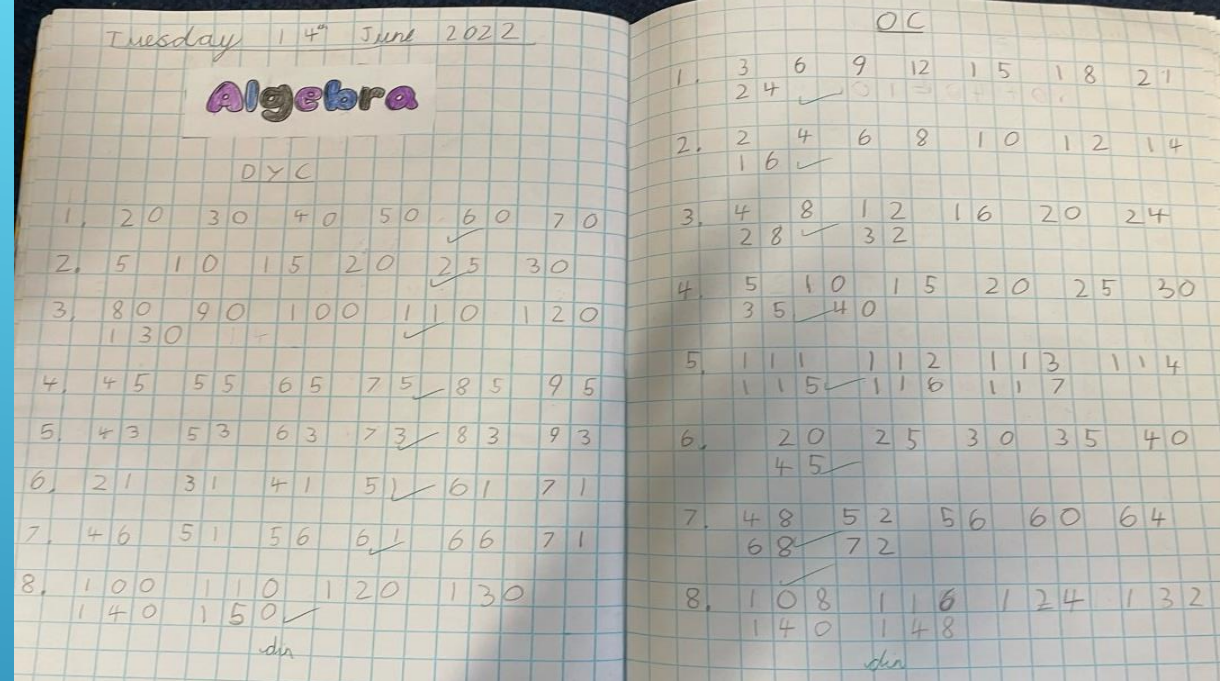 Tuesday 14th June 2022
Algebra
DYC
1. 20 30 40 50 60 70
2. 5 10 15 20 25 30
3. 80 90 100 110 120
130
4. 45 55 65 75 85 95
5. 43 53 63 73 83 93
6. 21 31 41 51 61 71
7. 46 51 56 61 66 71
8. 100 110 120 130
140 150
OC
1. 3 6 9 12 15 18 21
24
2. 2 4 6 8 10 12 14
16
3. 4 8 12 16 20 24
28 32
4. 5 10 15 20 25 30
35 40
5. 111 112 113 114
115 116 117
6. 20 25 30 35 40
45
7. 48 52 56 60 64
68 72
8. 108 116 124 132
140 148